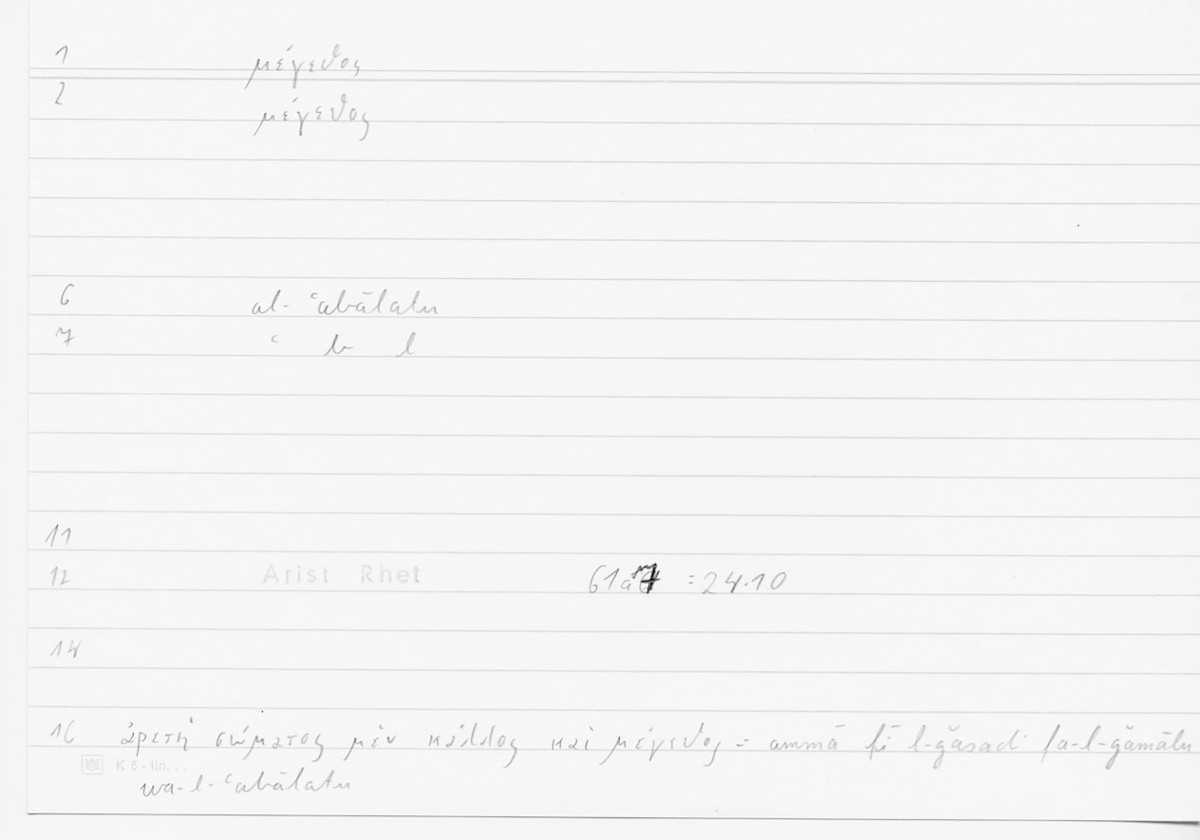 1 μέγεθος
2 μέγεθος
6 al-ʿabālatu
7 ʿ b l
11
12 Arist Rhet 61a7 =24.10
14
16 ἀρετὴ σώματος μὲν κάλλος καὶ μέγεθος = ammā fī l-ǧasadi fa-l-ǧamālu
wa-l-ʿabālatu